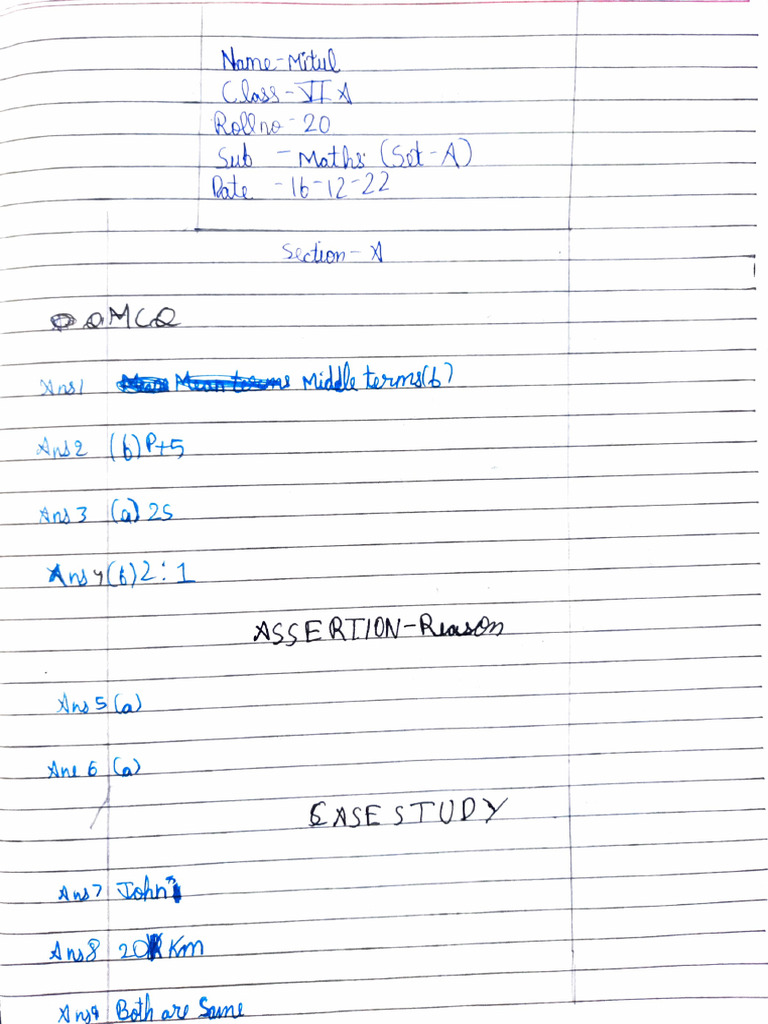 Name-Mitul
Class-VI A
Roll no-20
Sub - Maths (Set-A)
Date -16-12-22
Section-A
MCQ
Ans1 Middle terms(b)
Ans2 (b) P+5
Ans3 (a) 25
Ans4 (b) 2:1
ASSERTION-Reason
Ans5 (a)
Ane 6 (a)
CASE STUDY
Ans7 John
Ans8 20 Km
Ans9 Both are Same